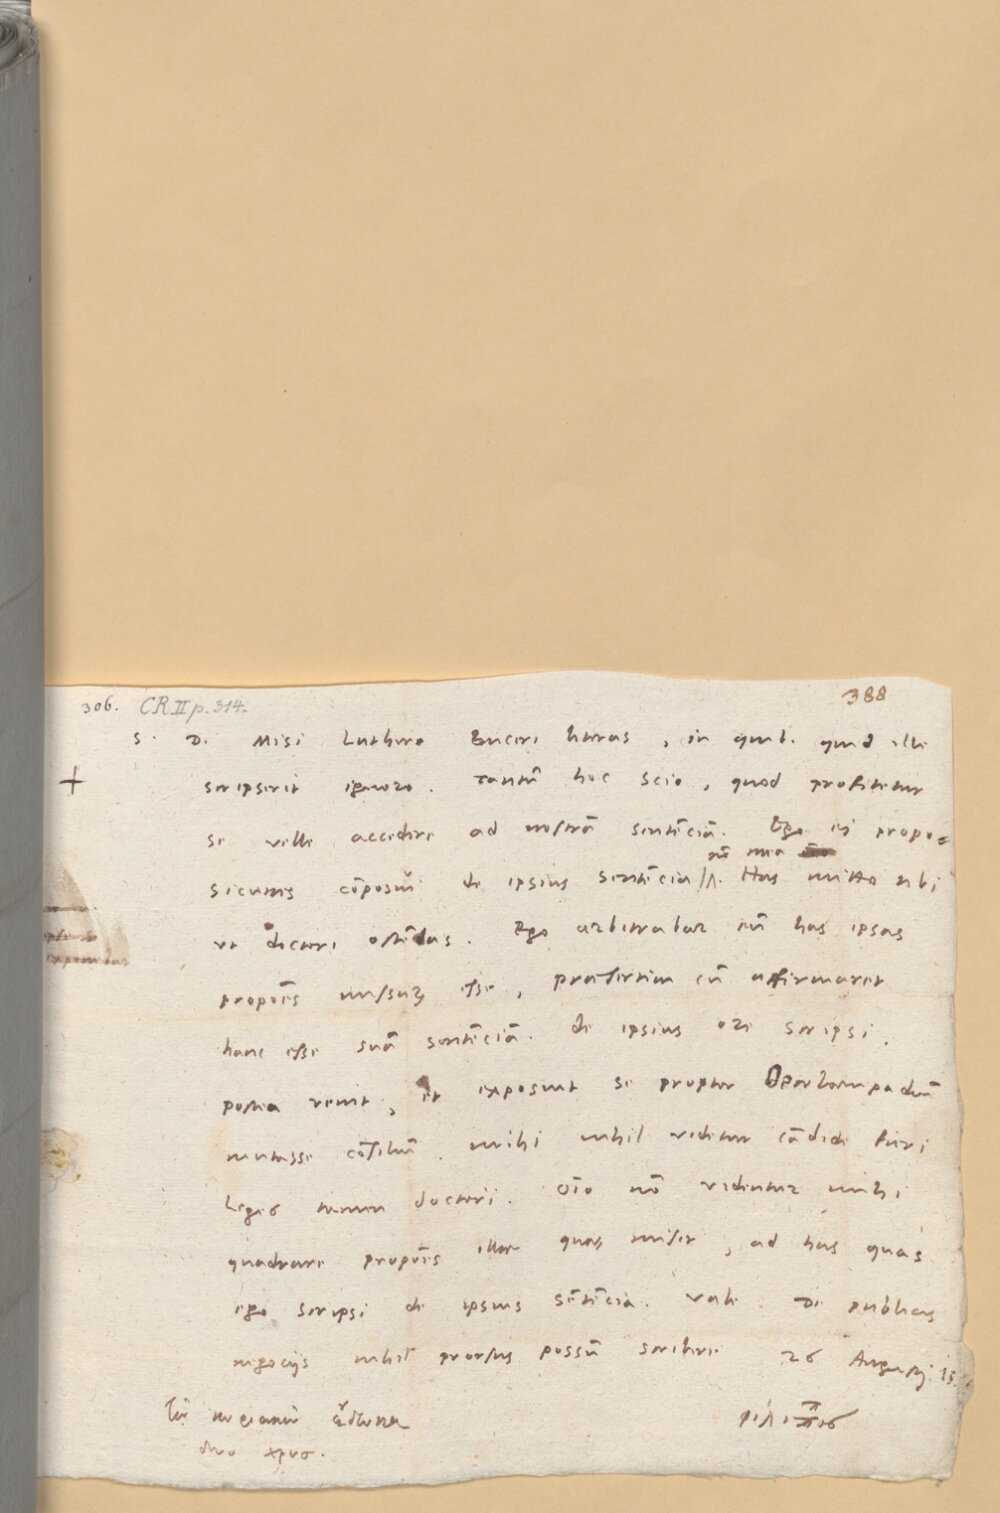 306. CR II p. 314.
388
S. D. Misi Luthero Buceri literas, in quib. quid ille
scripserit ignoro. Tantū hoc scio, quod profitetur
se velle accedere ad nostrā sentēciā. Ego ei propo=
nō mea
siciones cōposui de ipsius sentēcia. Has mitto tibi
vt doctori ostēdas. Ego arbitrabar eū has ipsas
propoēs missurū esse, praesertim cū affirmaret
hanc esse suā sentēciā. de ipsius ore scripsi.
postea venit, et exposuit se propter Oecolampadiū
mutasse cōsiliū. mihi nihil videtur cādide fieri
Leges tamen doctori. Oīo nō videntur mihi
quadrare propoēs illae quas misit, ad has quas
ego scripsi de ipsius sētēcia. Vale. De publicis
negocijs nihil prorsus possū scribere 26 Augusti
φιλιππος